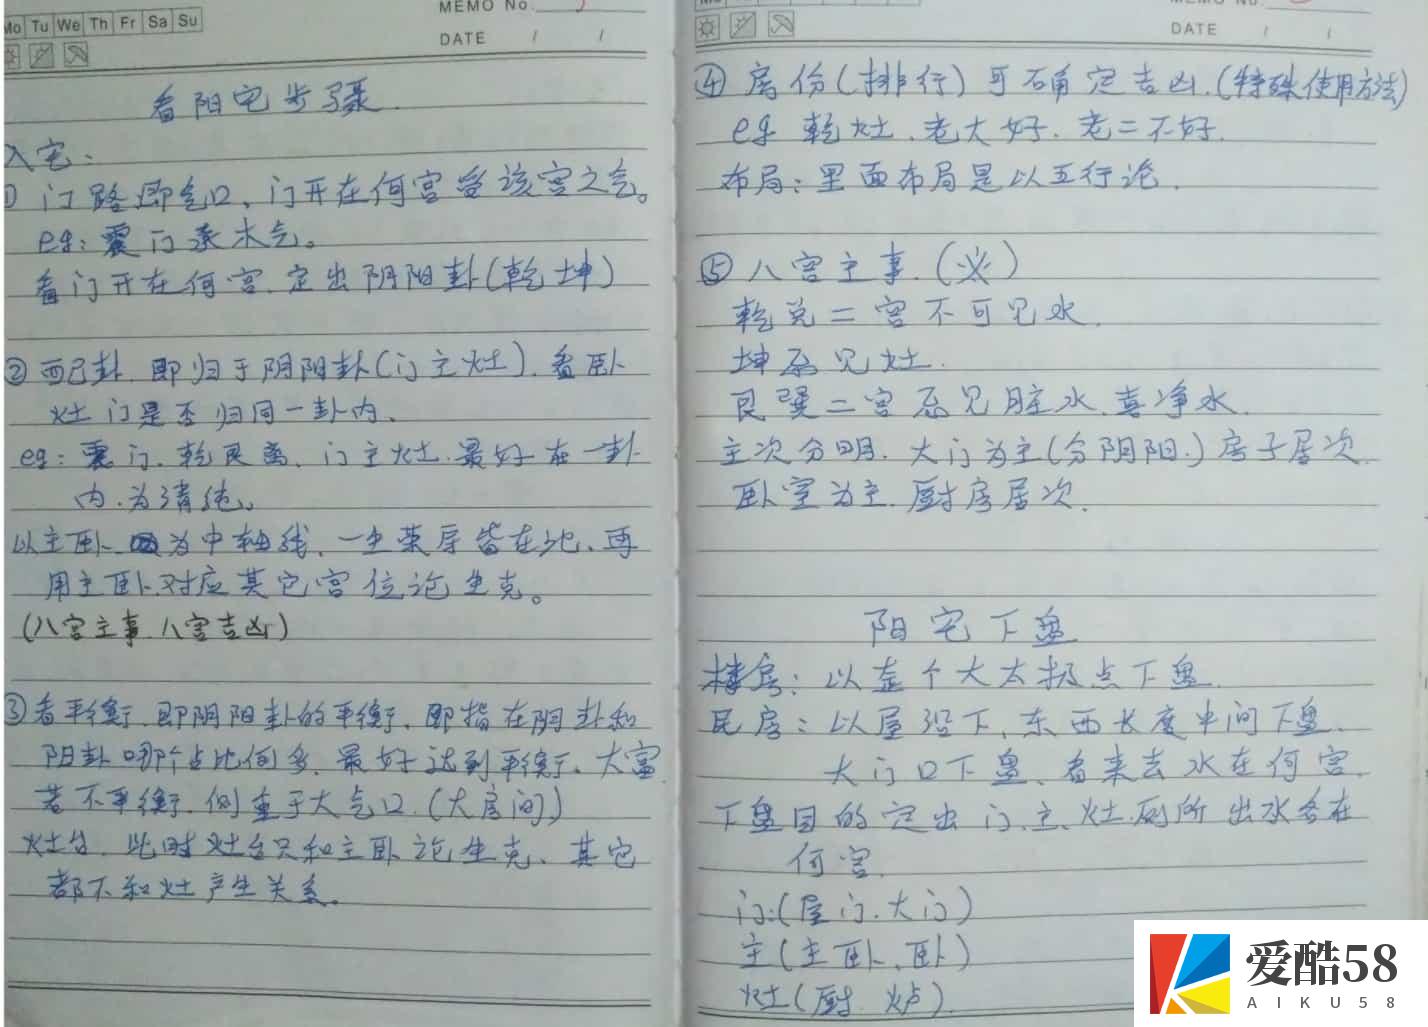 Mo Tu We Th Fr Sa Su
MEMO No.
DATE / /
看阳宅步骤.
入宅:
① 门路即气口、门开在何宫受该宫之气。
eg: 震门承木气。
看门开在何宫.定出阴阳卦(乾坤)
② 配卦.即归于阴阳卦(门主灶).看卧
灶门是否归同一卦内.
eg: 震门.乾艮离、门主灶.最好在一卦
内.为清纯。
以主卧 为中轴线、一生荣辱皆在此、再
用主卧对应其它宫位论生克。
(八宫主事.八宫吉凶)
③ 看平衡.即阴阳卦的平衡.即指在阴卦和
阳卦哪个占比例多.最好达到平衡、大富.
若不平衡.侧重于大气口.(大房间)
灶台.此时灶台只和主卧论生克、其它
都不和灶产生关系.
MEMO No.
DATE / /
④ 房份(排行)可确定吉凶.(特殊使用方法)
eg 乾灶.老大好.老二不好.
布局: 里面布局是以五行论.
⑤ 八宫主事.(必)
乾兑二宫不可见水.
坤忌见灶.
艮巽二宫忌见脏水.喜净水.
主次分明.大门为主(分阴阳.)房子居次.
卧室为主.厨房居次.
阳宅下盘
楼房: 以整个大太极点下盘.
民房: 以屋沿下、东西长度中间下盘.
大门口下盘、看来去水在何宫.
下盘目的定出门、主、灶.厕所出水各在
何宫.
门:(屋门.大门)
主(主卧、卧)
灶(厨.炉).
爱酷58
AIKU58